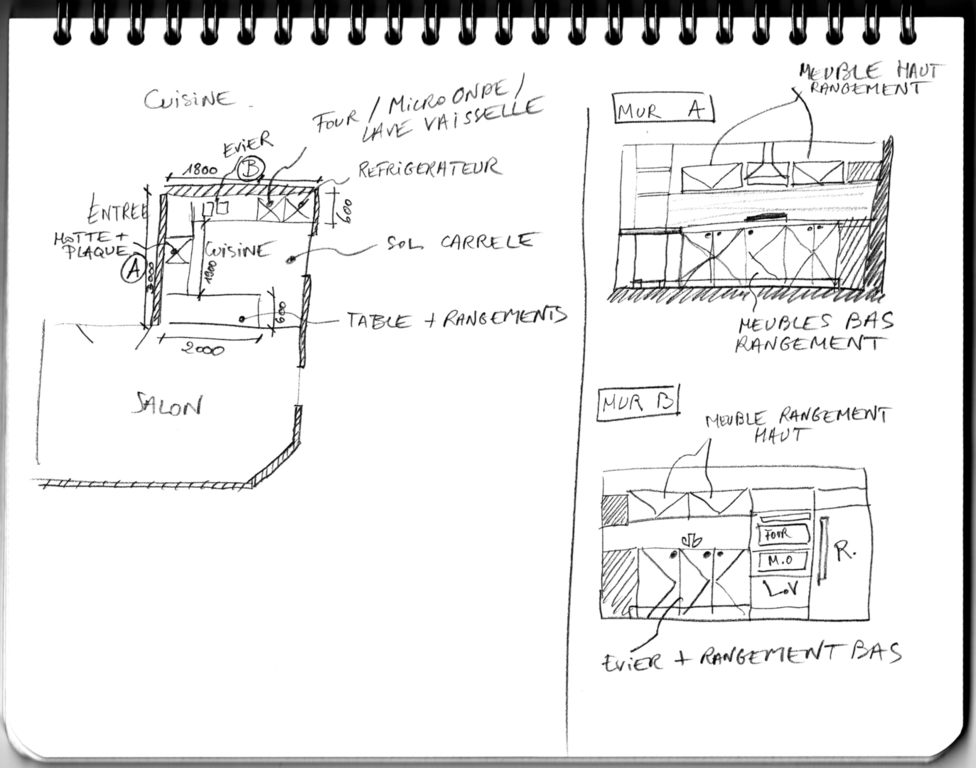 CUISINE
FOUR / MICRO ONDE /
LAVE VAISSELLE
EVIER
1800
B
REFRIGERATEUR
600
ENTREE
HOTTE +
PLAQUE
A
CUISINE
1800
SOL CARRELE
600
TABLE + RANGEMENTS
2000
SALON
MUR A
MEUBLE HAUT
RANGEMENT
MEUBLES BAS
RANGEMENT
MUR B
MEUBLE RANGEMENT
HAUT
FOUR
M.O
L.V
R.
EVIER + RANGEMENT BAS